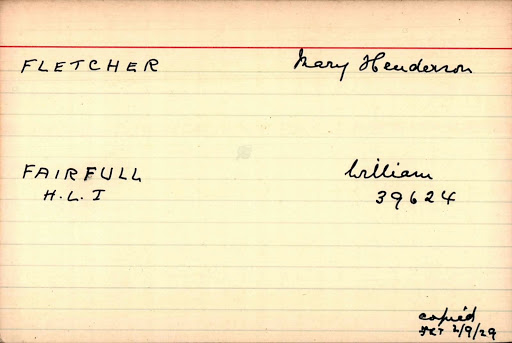 FLETCHER Mary Henderson
FAIRFULL William
H.L.I 39624
copied
2/9/29